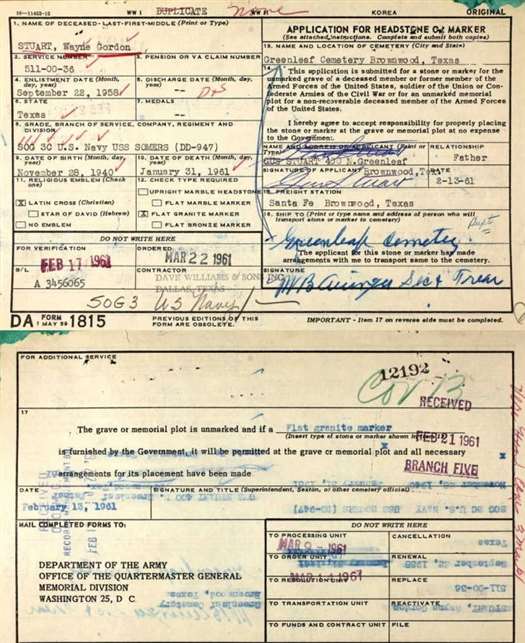 16-11402-10 WW I DUPLICATE WW II KOREA ORIGINAL
1. NAME OF DECEASED-LAST-FIRST-MIDDLE (Print or Type)
STUART, Wayne Gordon
2. SERVICE NUMBER
511-00-36
3. PENSION OR VA CLAIM NUMBER
4. ENLISTMENT DATE (Month, day, year)
September 22, 1958
5. DISCHARGE DATE (Month, day, year)
6. STATE
Texas
7. MEDALS
8. GRADE, BRANCH OF SERVICE, COMPANY, REGIMENT AND DIVISION
SOG 3C U.S. Navy USS SOMERS (DD-947)
9. DATE OF BIRTH (Month, day, year)
November 28, 1940
10. DATE OF DEATH (Month, day, year)
January 31, 1961
11. RELIGIOUS EMBLEM (Check one)
X LATIN CROSS (Christian)
STAR OF DAVID (Hebrew)
NO EMBLEM
12. CHECK TYPE REQUIRED
UPRIGHT MARBLE HEADSTONE
FLAT MARBLE MARKER
X FLAT GRANITE MARKER
FLAT BRONZE MARKER
DO NOT WRITE HERE
FOR VERIFICATION
FEB 17 1961
ORDERED
MAR 22 1961
B/L
A 3456065
CONTRACTOR
DAVE WILLIAMS & SONS INC
DALLAS, TEXAS
SOG3 US Navy
APPLICATION FOR HEADSTONE OR MARKER
(See attached instructions. Complete and submit both copies)
13. NAME AND LOCATION OF CEMETERY (City and State)
Greenleaf Cemetery Brownwood, Texas
This application is submitted for a stone or marker for the
unmarked grave of a deceased member or former member of the
Armed Forces of the United States, soldier of the Union or Con-
federate Armies of the Civil War or for an unmarked memorial
plot for a non-recoverable deceased member of the Armed Forces
of the United States.
I hereby agree to accept responsibility for properly placing
the stone or marker at the grave or memorial plot at no expense
to the Government.
NAME AND ADDRESS OF APPLICANT (Print or Type)
RELATIONSHIP
GUS STUART 400 N.Greenleaf
Father
SIGNATURE OF APPLICANT Brownwood,Texas
DATE
2-13-61
FREIGHT STATION
Santa Fe Brownwood, Texas
16. SHIP TO (Print or type name and address of person who will
transport stone or marker to cemetery)
Greenleaf Cemetery
The applicant for this stone or marker has made
arrangements with me to transport same to the cemetery.
SIGNATURE
Sec & Treas
DA FORM 1 MAY 59 1815
PREVIOUS EDITIONS OF THIS FORM ARE OBSOLETE.
IMPORTANT - Item 17 on reverse side must be completed.
FOR ADDITIONAL SERVICE
12192
RECEIVED
FEB 21 1961
BRANCH FIVE
17
The grave or memorial plot is unmarked and if a Flat granite marker
(Insert type of stone or marker shown in item 12)
is furnished by the Government, it will be permitted at the grave or memorial plot and all necessary
arrangements for its placement have been made
DATE
February 13, 1961
SIGNATURE AND TITLE (Superintendent, Sexton, or other cemetery official)
MAIL COMPLETED FORMS TO:
DEPARTMENT OF THE ARMY
OFFICE OF THE QUARTERMASTER GENERAL
MEMORIAL DIVISION
WASHINGTON 25, D C
DO NOT WRITE HERE
TO PROCESSING UNIT
CANCELLATION
TO ORDER UNIT
RENEWAL
TO RESOLUTION UNIT
REPLACE
TO TRANSPORTATION UNIT
REACTIVATE
TO FUNDS AND CONTRACT UNIT
FILE